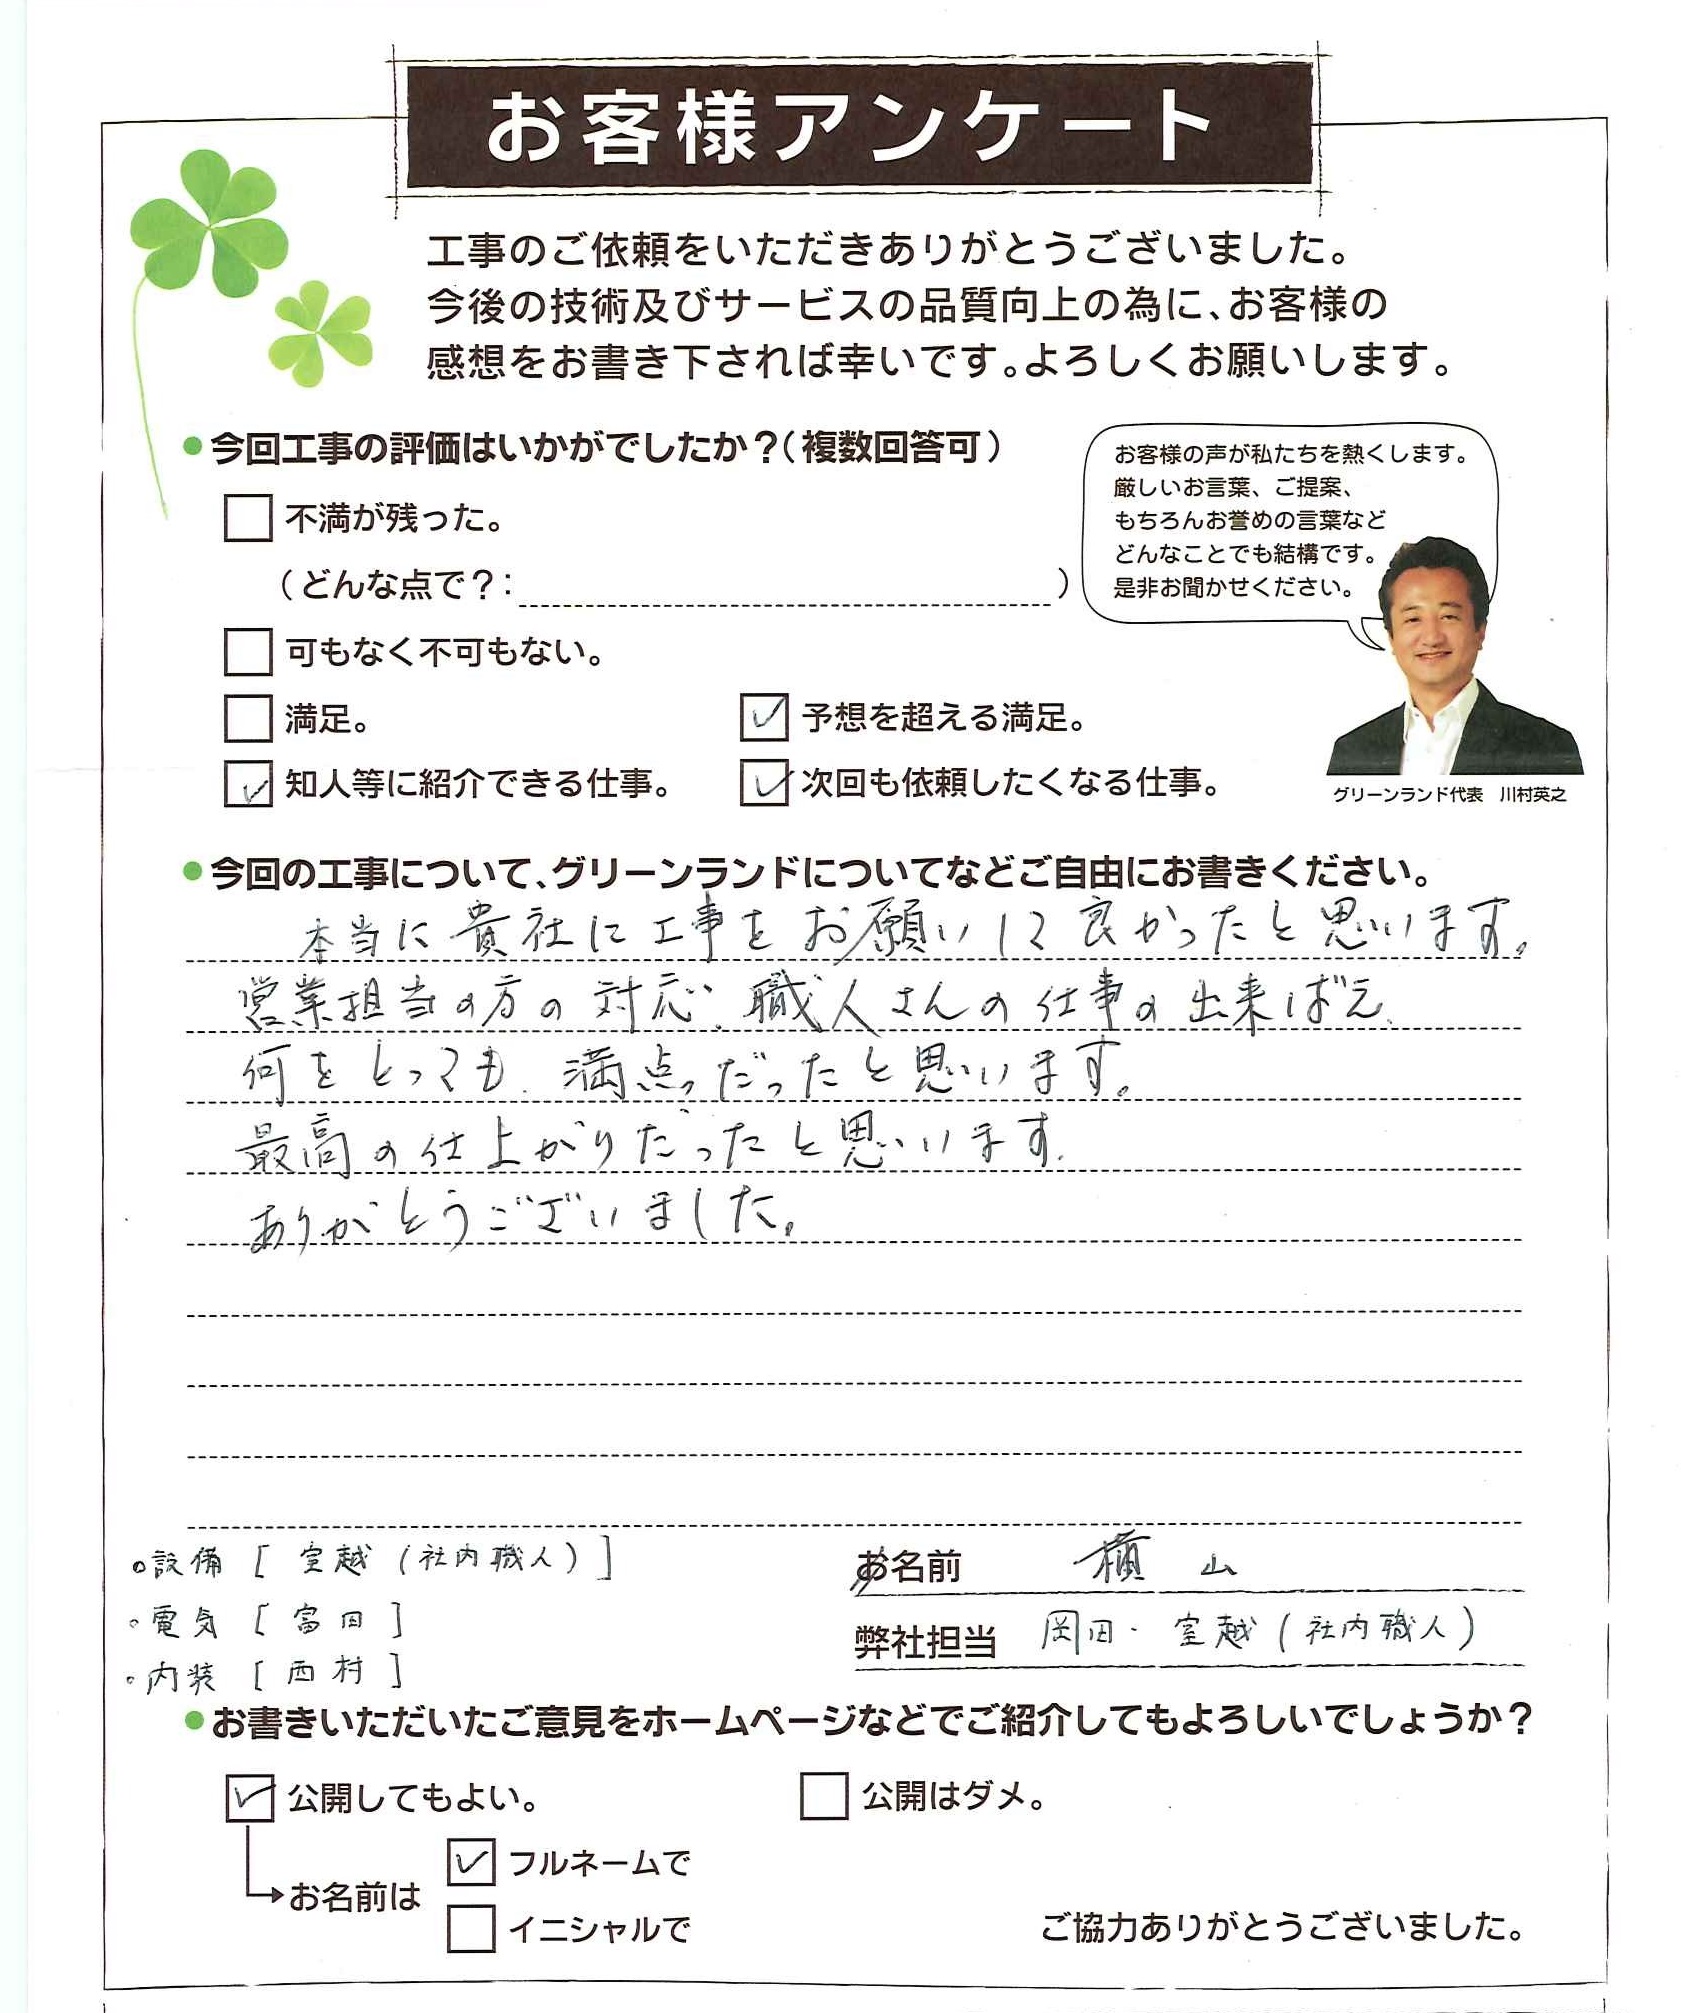 お客様アンケート
工事のご依頼をいただきありがとうございました。
今後の技術及びサービスの品質向上の為に、お客様の
感想をお書き下されば幸いです。よろしくお願いします。
●今回工事の評価はいかがでしたか？（複数回答可）
お客様の声が私たちを熱くします。
厳しいお言葉、ご提案、
もちろんお誉めの言葉など
どんなことでも結構です。
是非お聞かせください。
不満が残った。
（どんな点で？: ）
可もなく不可もない。
満足。
予想を超える満足。
知人等に紹介できる仕事。
次回も依頼したくなる仕事。
グリーンランド代表 川村英之
●今回の工事について、グリーンランドについてなどご自由にお書きください。
本当に貴社に工事をお願いして良かったと思います。
営業担当の方の対応、職人さんの仕事の出来ばえ、
何をとっても、満点だったと思います。
最高の仕上がりだったと思います。
ありがとうございました。
・設備［室越（社内職人）］
・電気［富田］
・内装［西村］
お名前 横山
弊社担当 岡田・室越（社内職人）
●お書きいただいたご意見をホームページなどでご紹介してもよろしいでしょうか？
公開してもよい。
公開はダメ。
お名前は
フルネームで
イニシャルで
ご協力ありがとうございました。